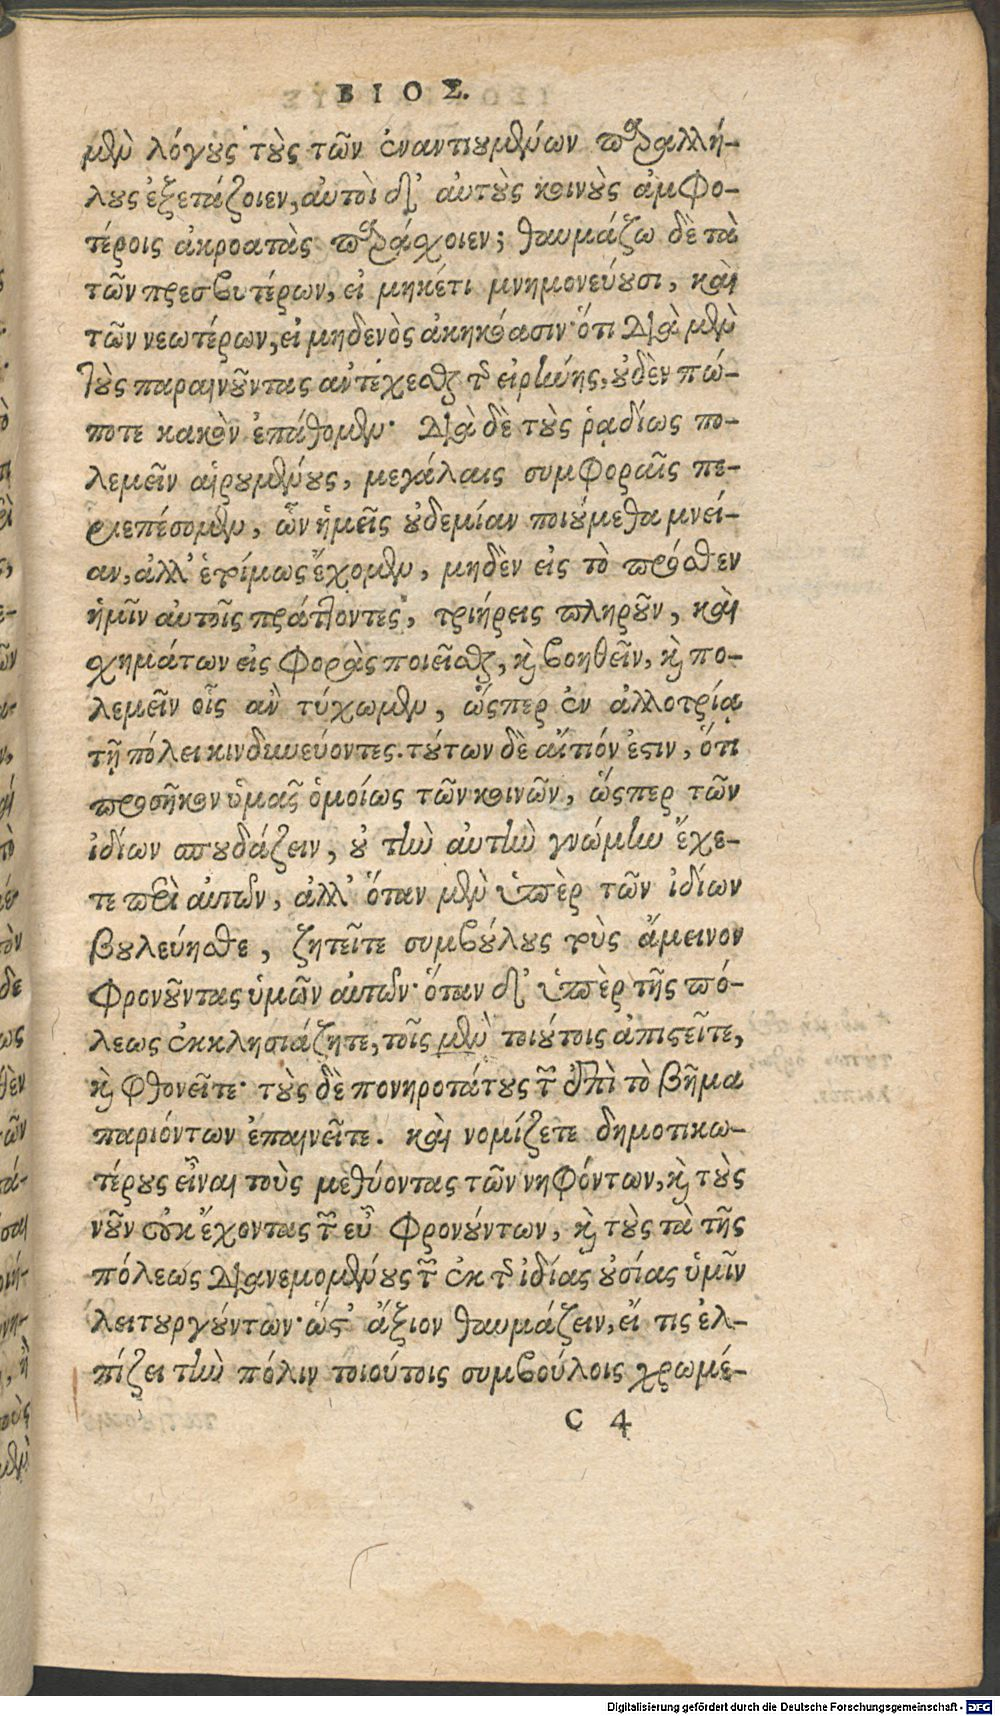 ΒΙΟΣ.
μὲν λόγους τοὺς τῶν ἐναντιουμένων παραλλή-
λους ἐξετάζοιεν, αὐτοὶ δ' αὑτοὺς κοινοὺς ἀμφο-
τέροις ἀκροατὰς παράσχοιεν; θαυμάζω δὲ τὰ
τῶν πρεσβυτέρων, εἰ μηκέτι μνημονεύουσι, καὶ
τῶν νεωτέρων, εἰ μηδενὸς ἀκηκόασιν· ὅτι διὰ μὲν
τοὺς παραινοῦντας ἀντέχεσθαι τῆς εἰρήνης, οὐδὲν πώ-
ποτε κακὸν ἐπάθομεν· διὰ δὲ τοὺς ῥᾳδίως πο-
λεμεῖν αἱρουμένους, μεγάλαις συμφοραῖς πε-
ριεπέσομεν, ὧν ἡμεῖς οὐδεμίαν ποιούμεθα μνεί-
αν, ἀλλ' ἑτοίμως ἔχομεν, μηδὲν εἰς τὸ πρόσθεν
ἡμῖν αὐτοῖς πράττοντες, τριήρεις πληροῦν, καὶ
χημάτων εἰς φορὰς ποιεῖσθαι, καὶ βοηθεῖν, καὶ πο-
λεμεῖν οἷς ἂν τύχωμεν, ὥσπερ ἐν ἀλλοτρίᾳ
τῇ πόλει κινδυνεύοντες. τούτων δὲ αἴτιόν ἐστιν, ὅτι
προσῆκον ὑμᾶς ὁμοίως τῶν κοινῶν, ὥσπερ τῶν
ἰδίων σπουδάζειν, οὐ τὴν αὐτὴν γνώμην ἔχε-
τε περὶ αὐτῶν, ἀλλ' ὅταν μὲν ὑπὲρ τῶν ἰδίων
βουλεύησθε, ζητεῖτε συμβούλους τοὺς ἄμεινον
φρονοῦντας ὑμῶν αὐτῶν· ὅταν δ' ὑπὲρ τῆς πό-
λεως ἐκκλησιάζητε, τοῖς μὲν τοιούτοις ἀπιστεῖτε,
καὶ φθονεῖτε· τοὺς δὲ πονηροτάτους τῶν ἐπὶ τὸ βῆμα
παριόντων ἐπαινεῖτε. καὶ νομίζετε δημοτικω-
τέρους εἶναι τοὺς μεθύοντας τῶν νηφόντων, καὶ τοὺς
νοῦν οὐκ ἔχοντας τῶν εὖ φρονούντων, καὶ τοὺς τὰ τῆς
πόλεως διανεμομένους τῶν ἐκ τῆς ἰδίας οὐσίας ὑμῖν
λειτουργούντων· ὥστ' ἄξιον θαυμάζειν, εἴ τις ἐλ-
πίζει τὴν πόλιν τοιούτοις συμβούλοις χρωμέ-
C 4
Digitalisierung gefördert durch die Deutsche Forschungsgemeinschaft - DFG